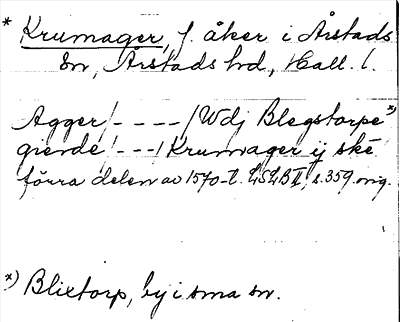 * Krumager, f. åker i Årstads
sn, Årstads hd, Hall. l.
Agger /- - - -/ Wdj Blegstorpe *)
gierde /- - -/ Krumager ij ske
förra delen av 1570-t. LSLB II, s. 359. orig.
*) Blixtorp, by i sma sn.